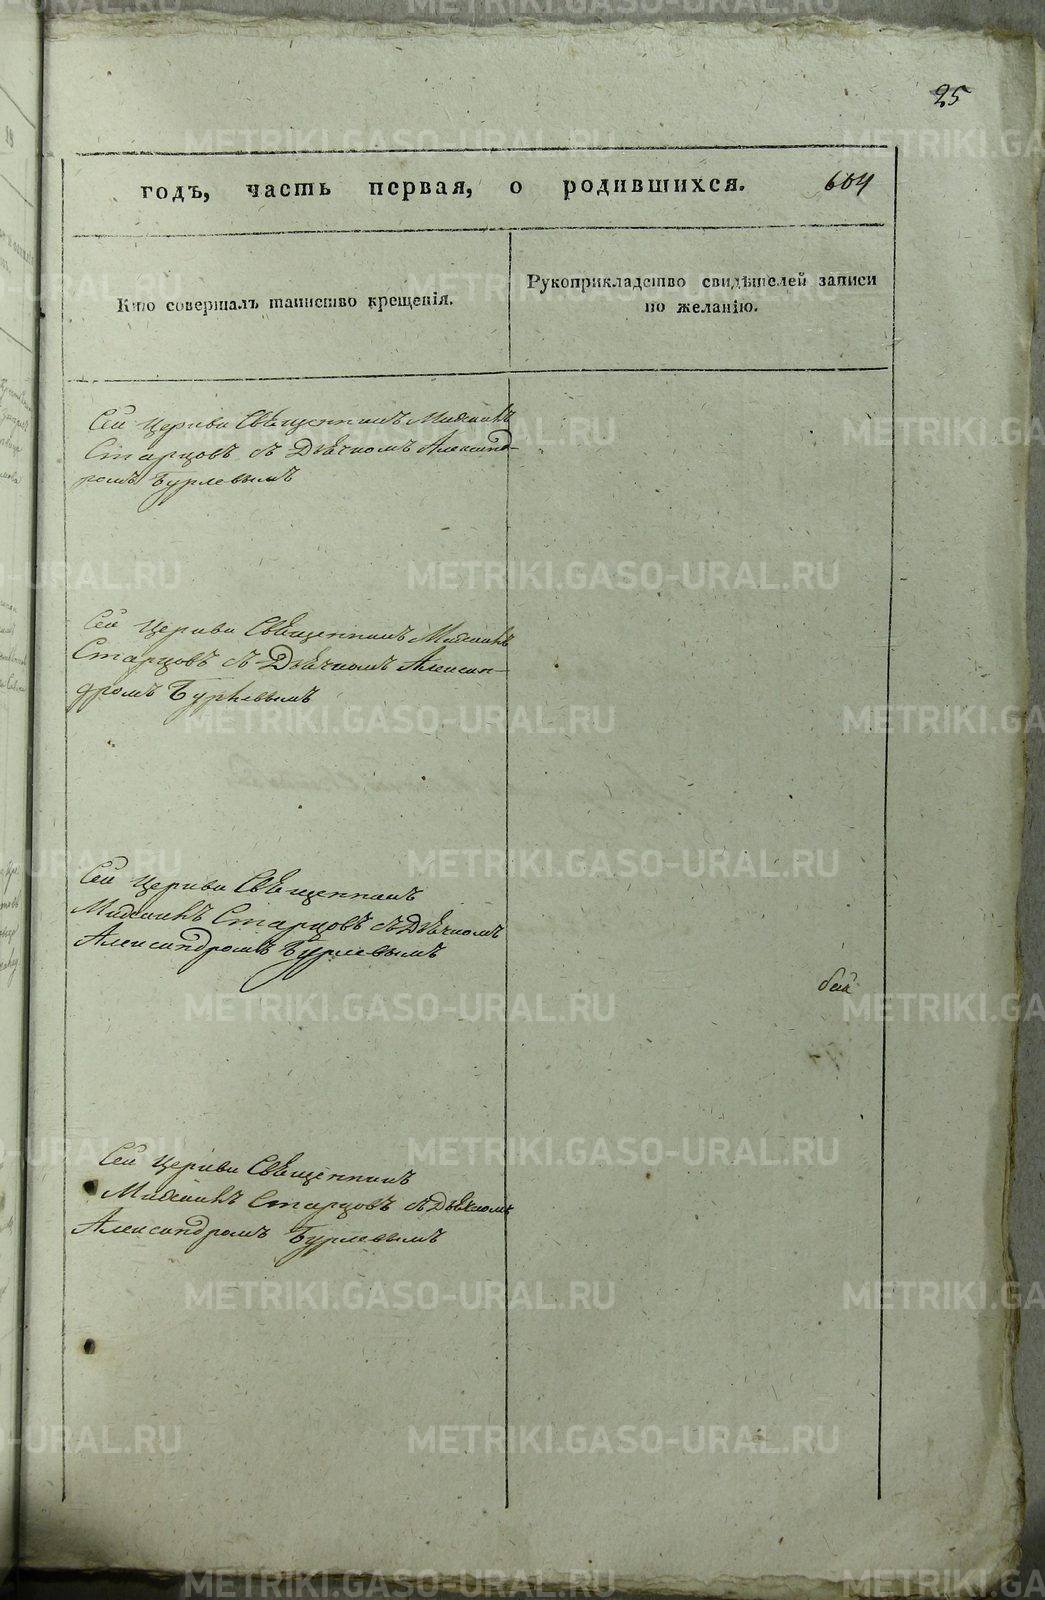 25
годъ, часть первая, о родившихся. 604
Кто совершалъ таинство крещенія.
Рукоприкладство свидѣтелей записи
по желанію.
Сей Церкви Священникъ
Старцовъ съ Дьячкомъ Александ-
ромъ Бурлевымъ
Сей Церкви Священникъ
Старцовъ съ Дьячкомъ Алексан-
дромъ Бурлевымъ
Сей Церкви Священникъ
Старцовъ съ Дьячкомъ
Александромъ Бурлевымъ
Сей Церкви Священникъ
Старцовъ съ Дьячкомъ
Александромъ Бурлевымъ
METRIKI.GASO-URAL.RU